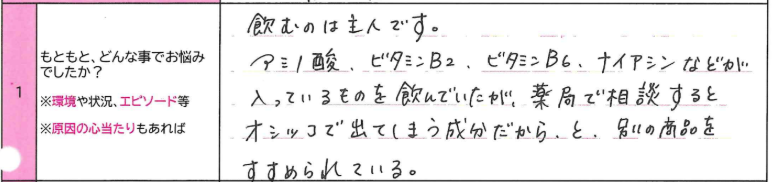 1
もともと、どんな事でお悩み
でしたか？
※環境や状況、エピソード等
※原因の心当たりもあれば
飲むのは主人です。
アミノ酸、ビタミンB2、ビタミンB6、ナイアシンなどが
入っているものを飲んでいたが、薬局で相談すると
オシッコで出てしまう成分だから、と、別の商品を
すすめられている。